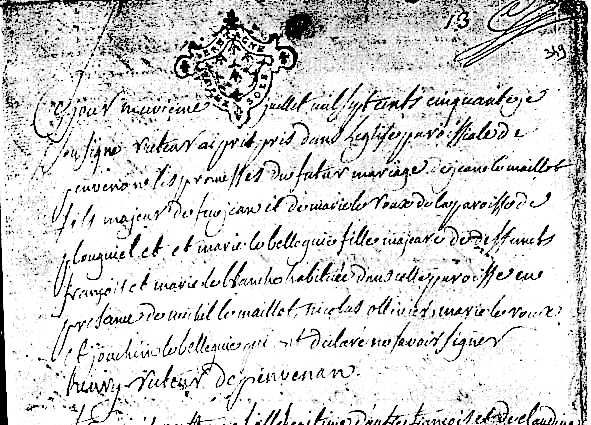 13
319
Ce jour neuvieme juillet mil sept cents cinquante je
sousigne recteur ai pris dans l'eglise paroissiale de
penvenan les promesses du futur mariage de jean le maillot
fils majeur de feu jean et de marie le roux de la paroisse de
plouguiel et marie le belleguic fille majeure de deffunts
françois et marie le blanc habituée dans cette paroisse en
presence de michel le maillot, nicolas ollivier, marie le roux
et joachim le belleguic qui ont declaré ne savoir signer
recteur de penvenan
françois et de claudine